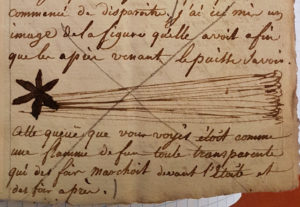 commencé de disparitre, j'ai icy mis un
image de sa figure qu'elle avoit afin
que les après venant le puisse savoir.
Cette queuë que vous voyés étoit comme
une flamme de feu toute transparente
qui des fai marchoit devant l'étoile et
des fai après.